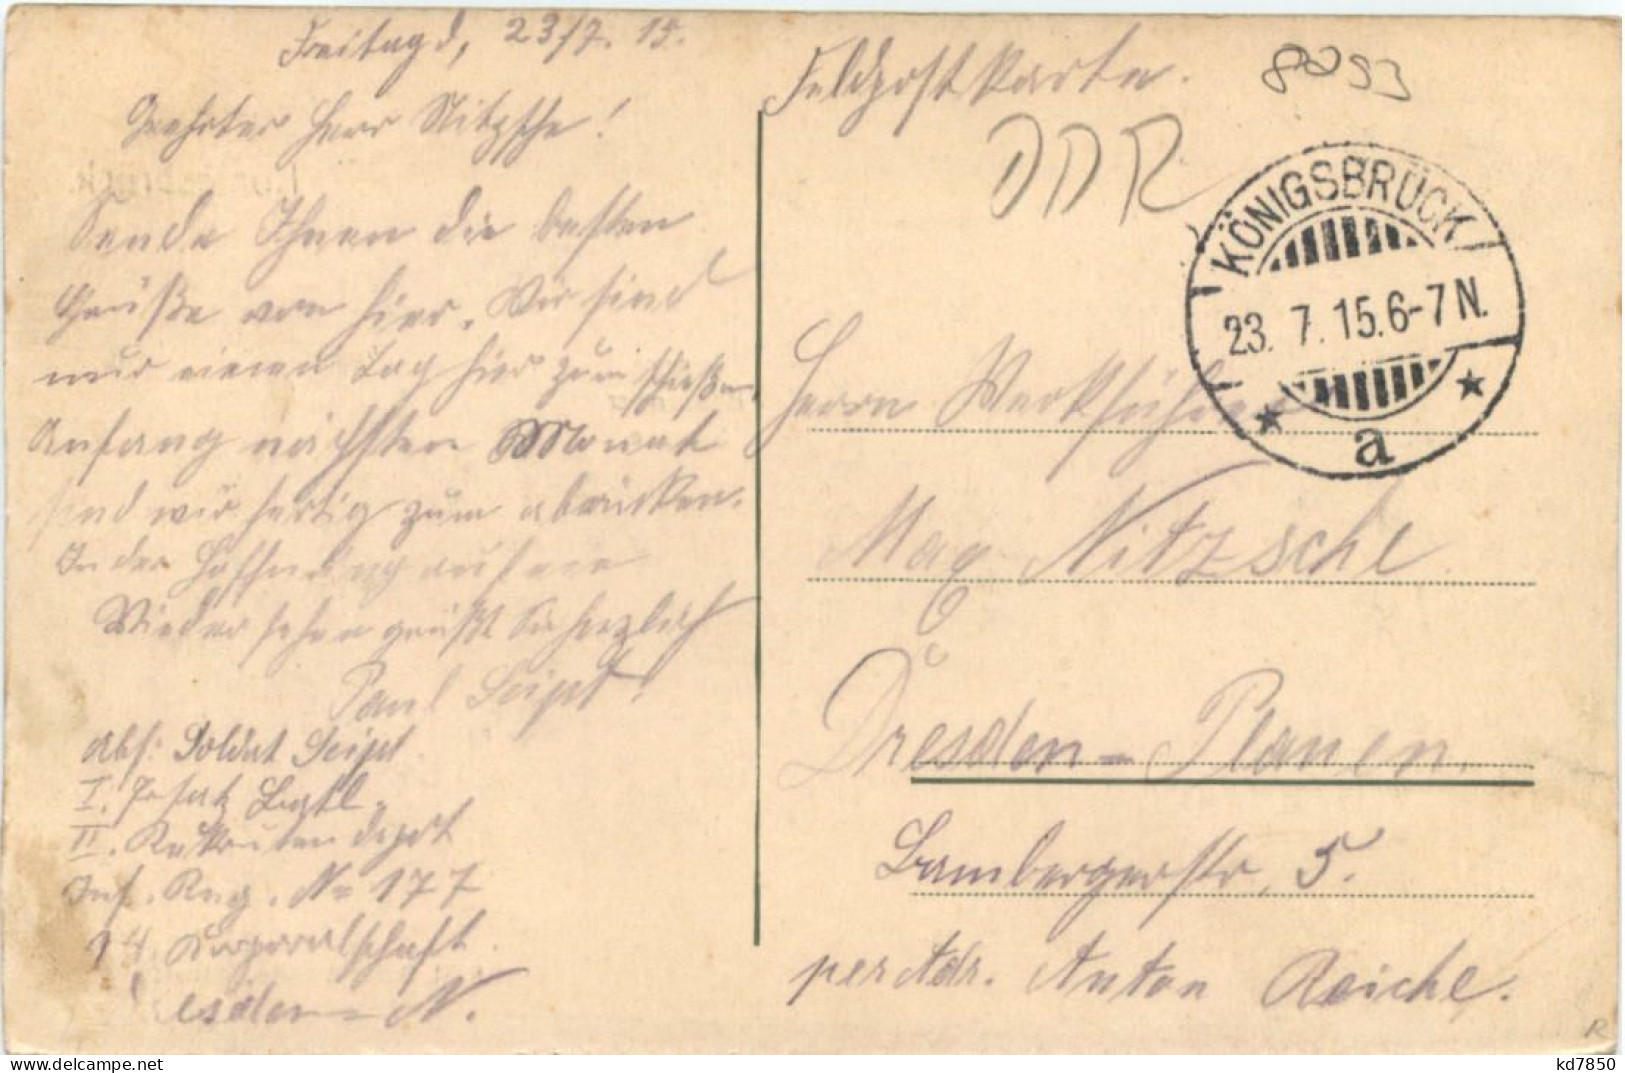 Freitag d, 23/7. 15.
Geehrter Herr Nitzsche!
Sende Ihnen die besten
Grüße von hier. Wir sind
nur einen Tag hier zum schießen.
Anfang nächsten Monat
sind wir fertig zum abrücken.
In der Hoffnung auf ein
Wiedersehen grüßt Sie herzlich
Paul Seipt!
Abs: Soldat Seipt
I. Ersatz Batl.
II. Rekrutendepot
Inf. Reg. No 177
14 Korporalschaft
esden-N.
Feldpostkarte.
8053
DDR
KÖNIGSBRÜCK
23. 7. 15. 6-7 N.
* a *
Herrn Werkführer
Max Nitzsche
Dresden-Plauen.
Bambergerstr. 5.
per Adr. Anton Reiche.
R
kd7850